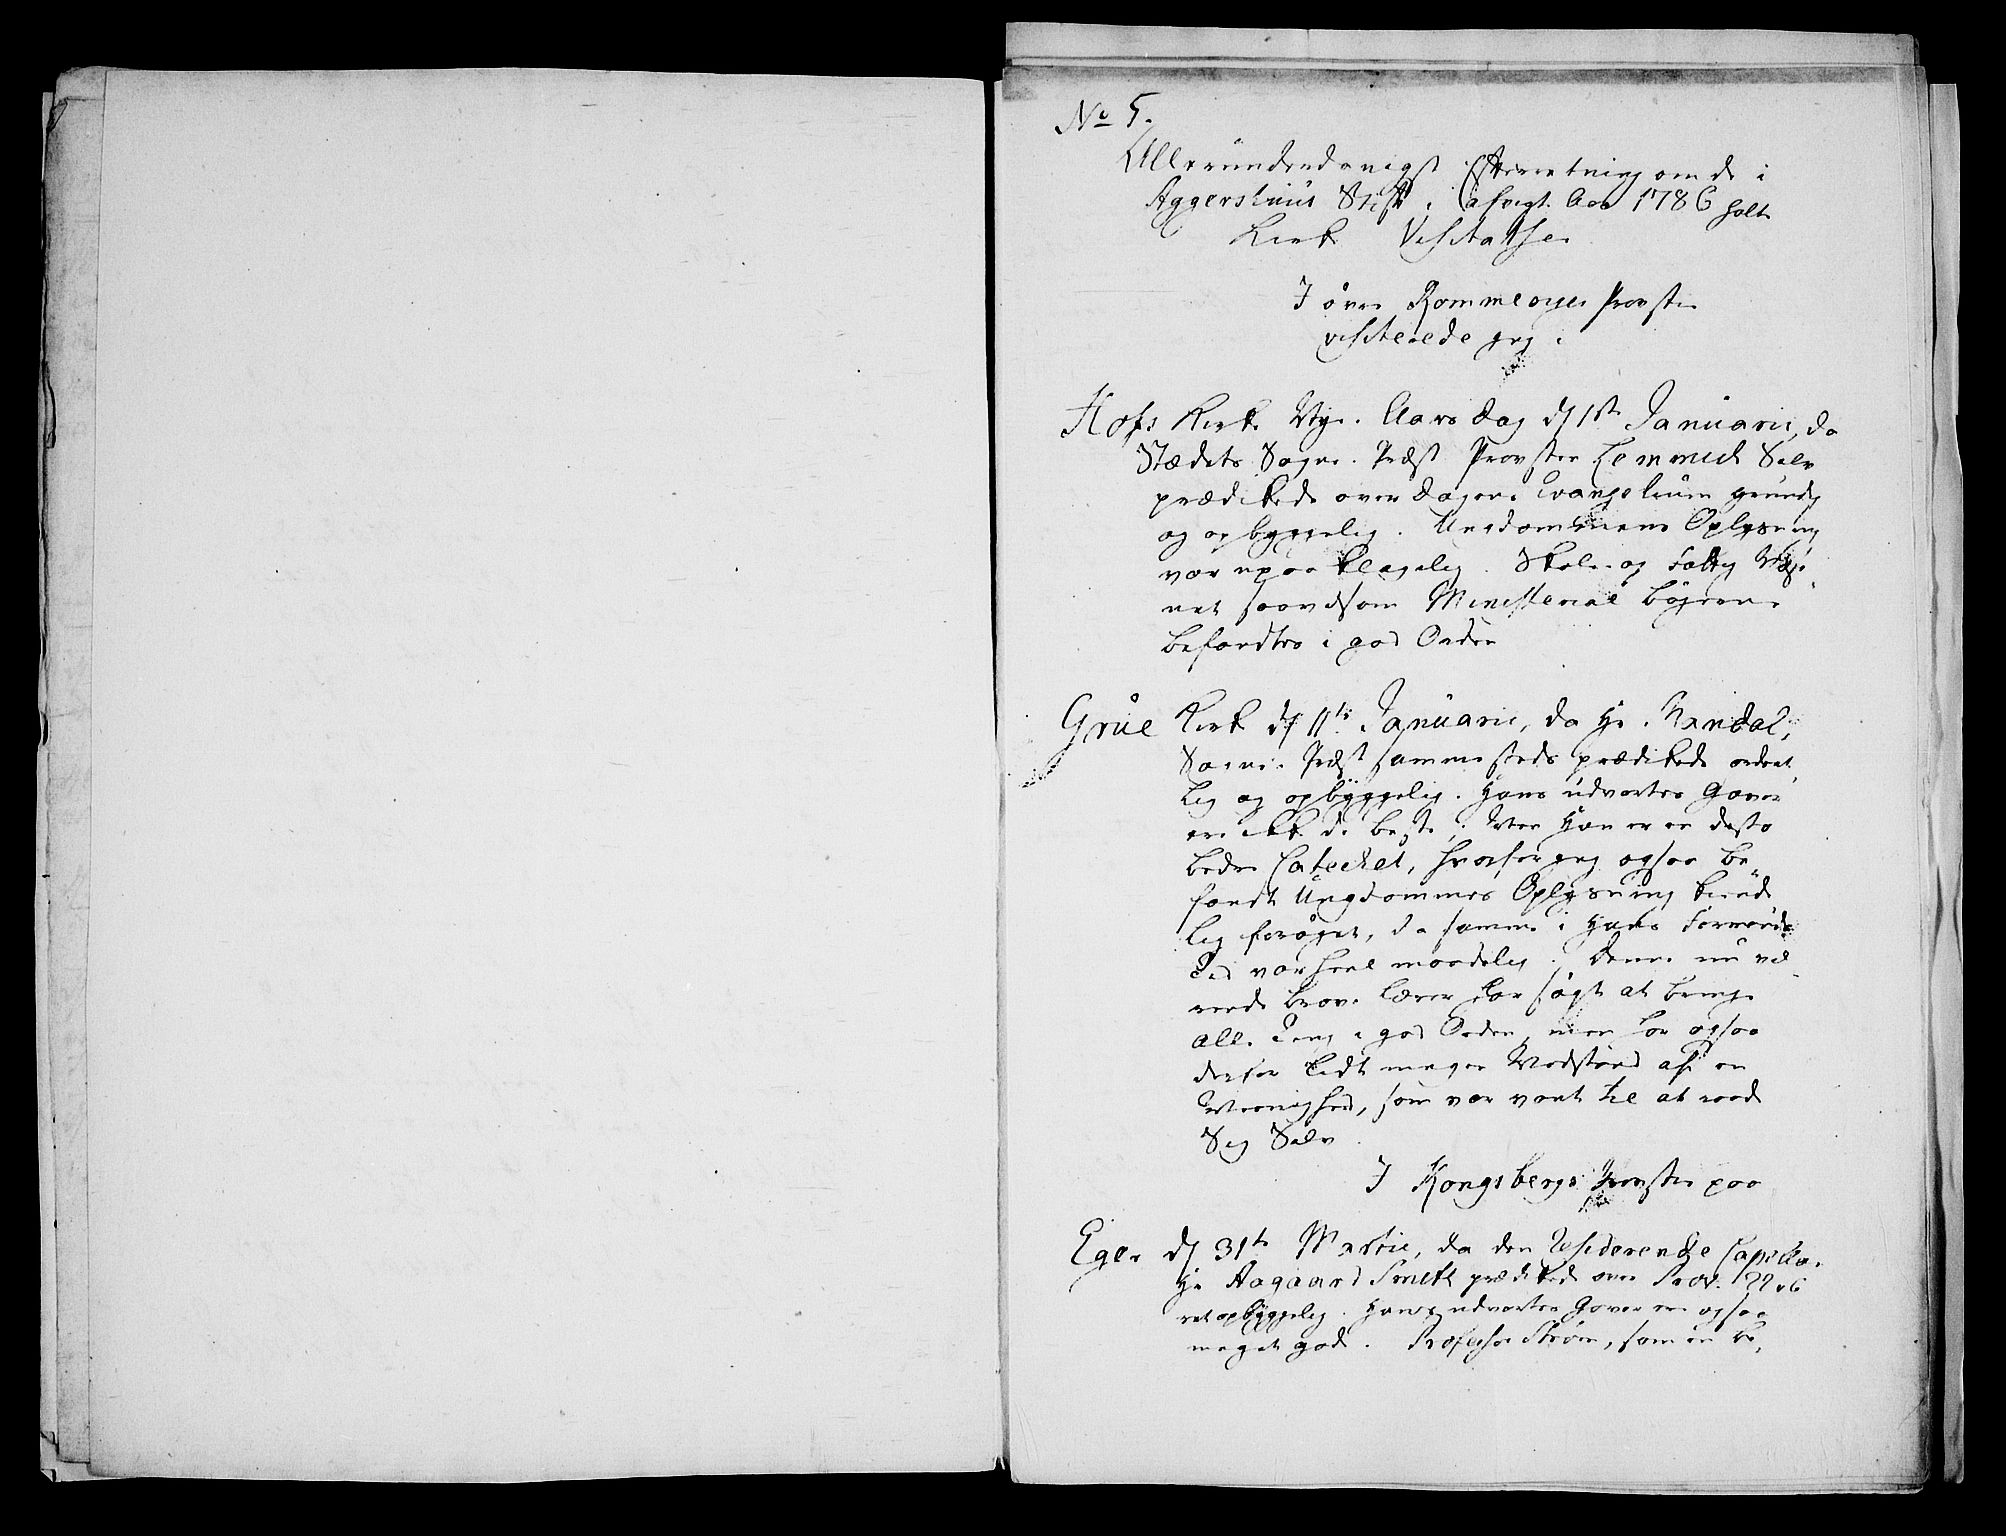 No 5.
Allerunderdanigst Efterretning om de i
Aggershuus Stift i afvigte Aar 1786 holte
Kirke Visitatser
I övre Rommeriges Provstie
visiterede jeg i
Hofs Kirke Nye Aars dag d 1ste Januarii, da
Stædets Sogne Præst Provsten Lemmich Selv
prædikede over dagens Evangelium grundig
og opbyggelig. Ungdommens Oplysning
var upaaklagelig. Skole og Fattig Væse
net saavelsom Ministerial bøgerne
befandtes i god Orden
Grue Kirke d 11te Januarii, da Hr.
Sogne Præst sammesteds prædikede ordent
lig og opbyggelig. Hans udvortes Gaver
ere ikke de beste; Men Han er en desto
bedre Catechet, hvorfor jeg ogsaa be
fandt Ungdommens Oplysning kiende
lig forøget, da samme i Hans Formands
Tid var heel maadelig. Denne nu væ
rende brave Lærer har søgt at bringe
alle Ting i god Orden, men har ogsaa
derfor lidt megen Modstand af en
Meenighed, som var vant til at raade
Sig Selv
I Kongsbergs Provstie paa
Eger d 31te Martii, da den Residerende Capellan
Hr Aagaard Smith prædikede over Prov. 22 v 6
ret opbyggelig. Hans udvortes Gaver ere ogsaa
meget gode. Professor Strøm, som en be,